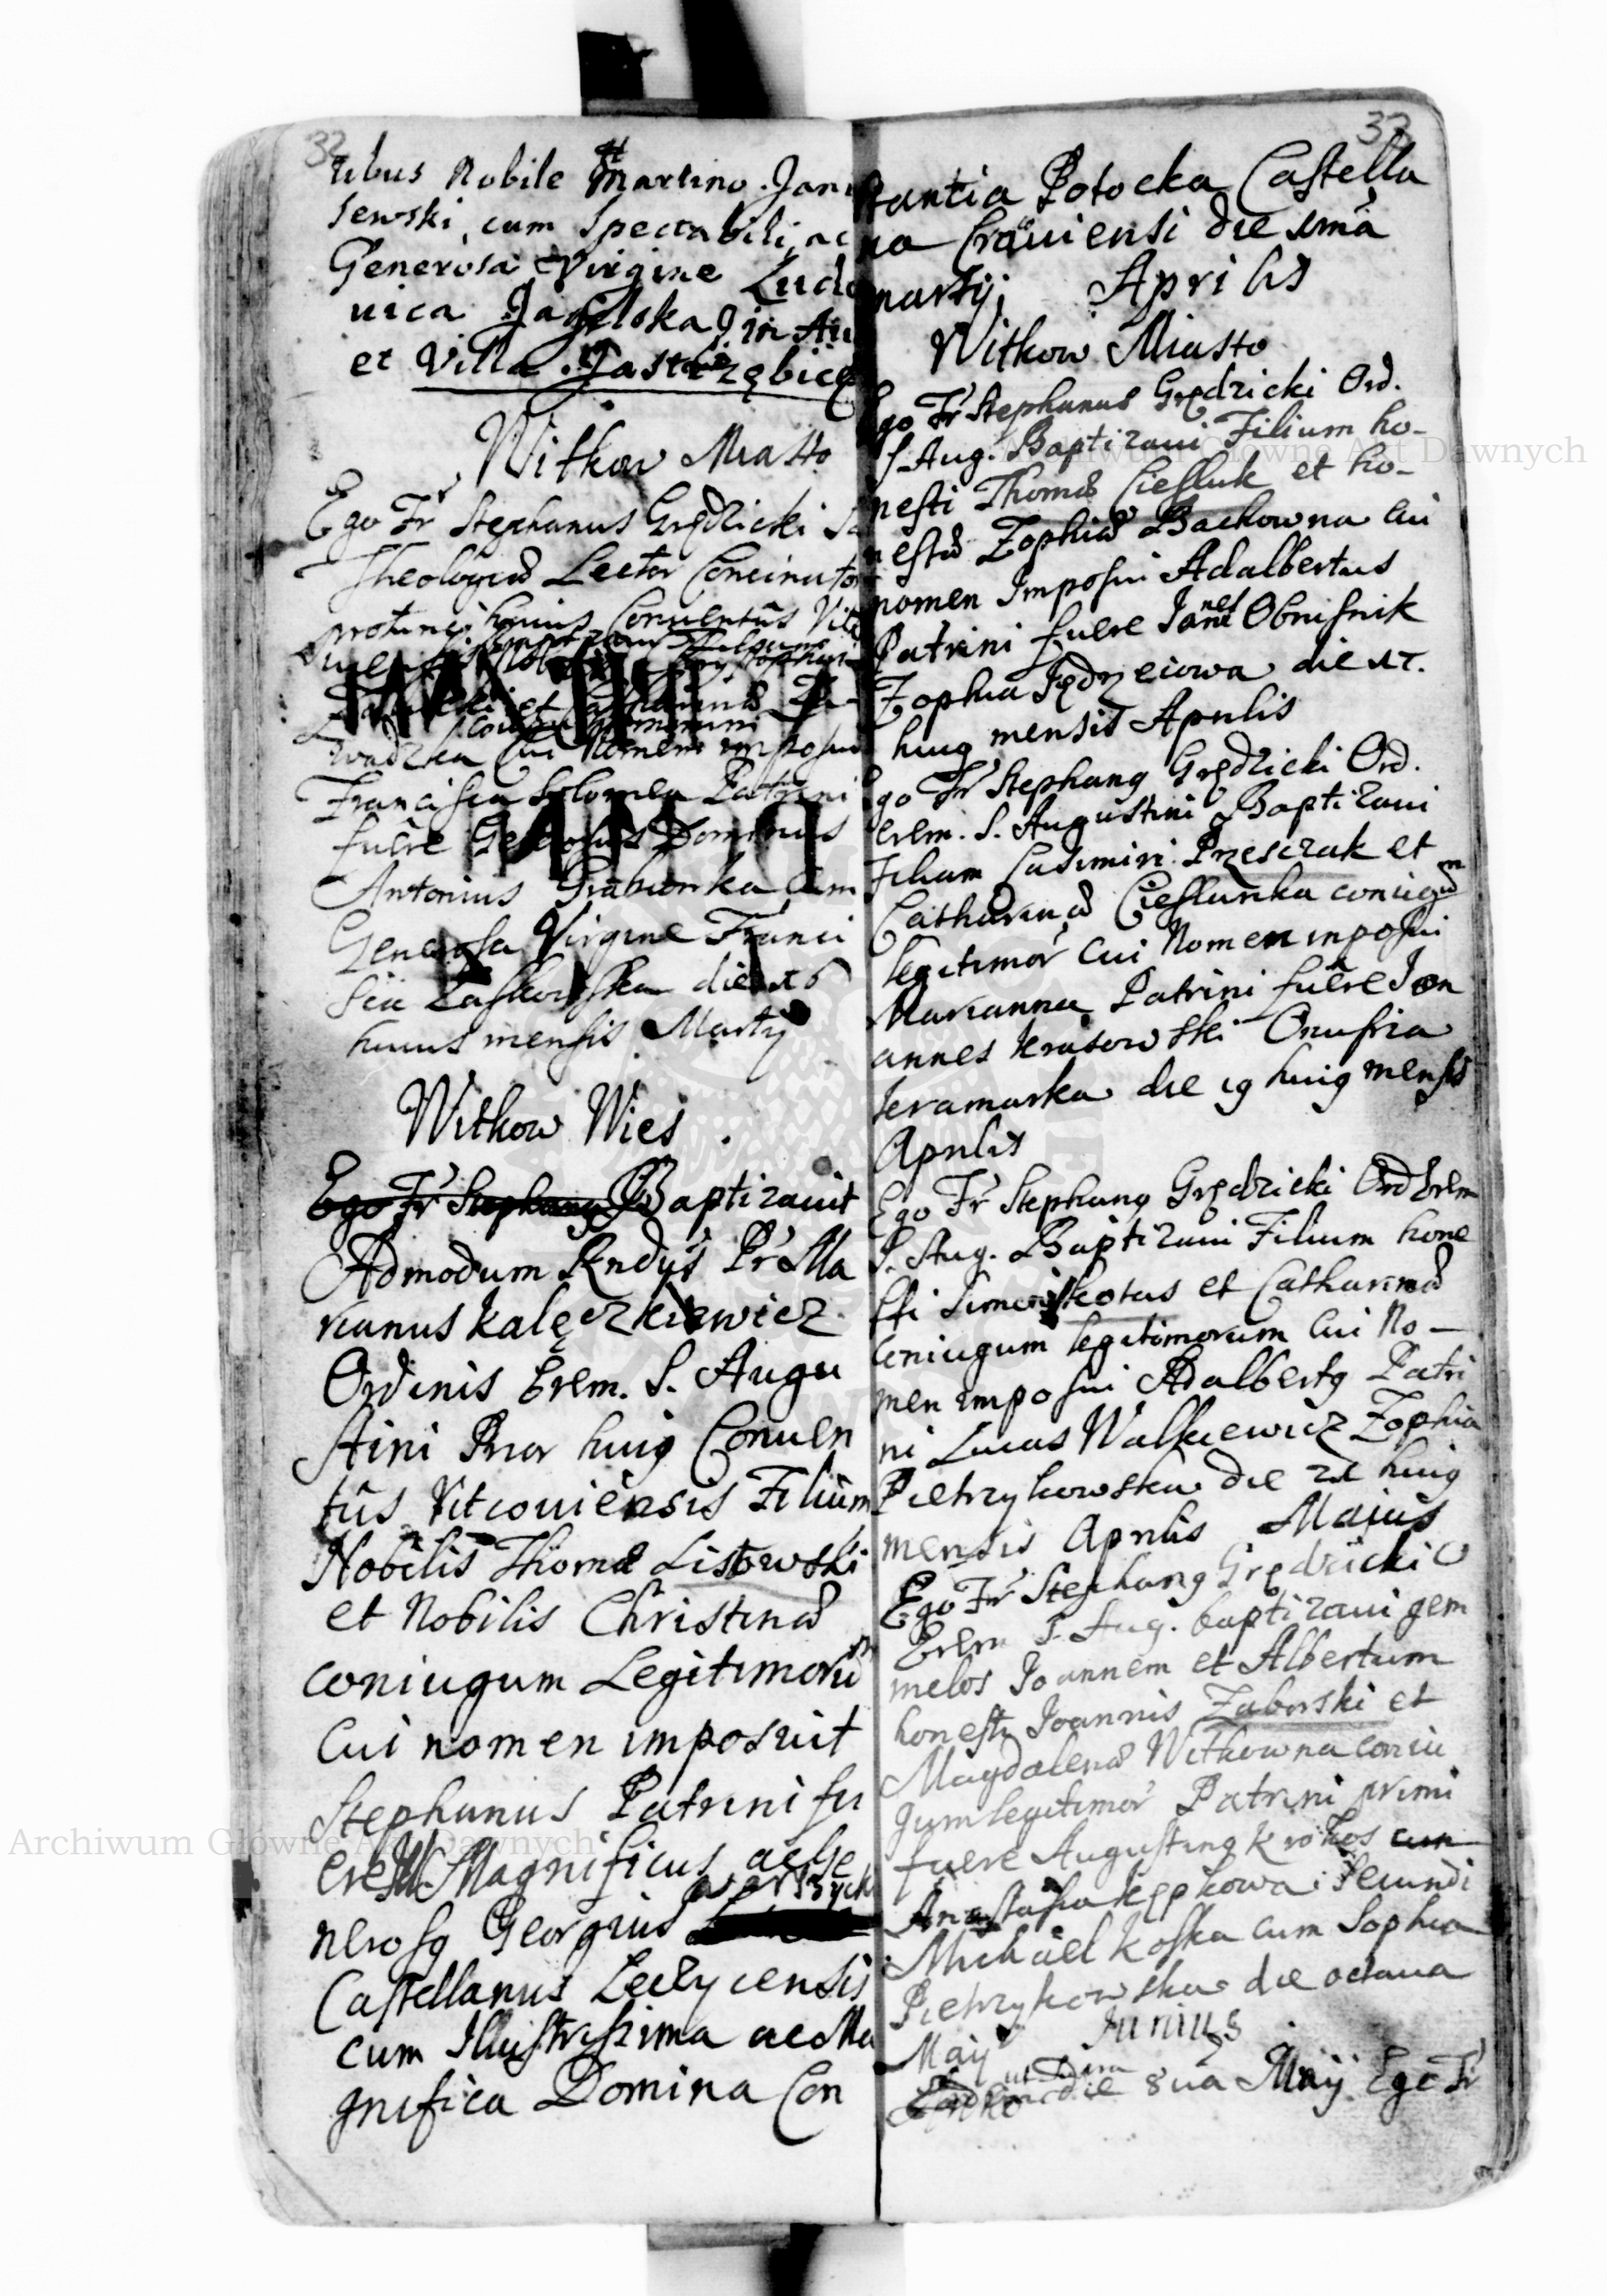 32
tibus Nobile Martino Jani
sewski cum Spectabili ac
Generosa Virgine Ludo
uica in Au
et Villa Jastrzębice
Witkow Miasto
Ego Fr Stephanus Grędzicki Sa
Theologiæ Lector Concinator
huius Conuentûs Vit
et Catharinæ Za-
cui Nomen imposui
Francisca Solomea Patrini
fuêre Generosus Dominus
Antonius Grabionka cum
Generosa Virgine Franci
sca die 16
huius mensis Martij
Witkow Wies
Ego Fr Stephang Baptizauit
Admodum Rndus Pr Ma
rianus Kalęczkiewicz
Ordinis Erem. S. Augu
stini Prior huig Conuen
tûs Vitcouiensis Filium
Nobilis Thomæ Listowski
et Nobilis Christinæ
coniugum Legitimorum
Cui nomen imposuit
Stephanus Patrini fu
ere Magnificus ac Ge
nerosg Georgius
Castellanus Leczycensis
cum Illustrissima ac Ma
gnifica Domina Con
33
stantia Potocka Castella
na Craciuiensi die 1mâ
martij Aprilis
Witkow Miasto
Ego Fr Stephanus Grędzicki Ord.
S. Aug. Baptizaui Filium ho-
nesti Thomæ Ciesluk et ho-
nestæ Zophiæ Backowna cui
nomen Imposui Adalbertus
Patrini fuere Janes Obnisnik
Zophia Jędrzeiowa die 17.
huig mensis Aprilis
Ego Fr Stephang Grędzicki Ord.
erem. S. Augustini Baptizaui
Filiam Casimiri Przesczak et
Catharinæ Cieslunka coniugum
legitimor cui Nomen inposui
Marianna Patrini fuêre Jon
annes Krasowski Onufria
Keramarka die 19 huig mensis
Aprilis
Ego Fr Stephang Grędzicki Ord Erem
S. Aug. Baptizaui Filium hone
sti Simeonis Kotus et Catharinæ
Coniugum legitimorum Cui No-
men imposui Adalbertg Patri
ni Lucas Walkiewicz Zophia
Pietrzykowska die 21 huig
mensis Aprilis Maius
Ego Fr Stephang Grędzicki O
Erem S. Aug. baptizaui gem
melos Joannem et Albertum
honesti Joannis Zaborski et
Magdalenæ Witkowna coniu
gum legitimor Patrini primi
fuere Augusting Krokos cum
Anastasia Kępkowa Secundi
Michäel Koska cum Sophia
Pietrzykowska die octaua
Maij Junius
die 8ua Maij Ego Fr
Archiwum Główne Akt Dawnych
Archiwum Główne Akt Dawnych